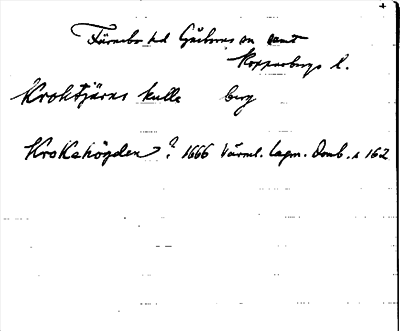 Färnebo hd Gåsborns sn samt
Kopparbergs l.
Kroktjärns kulle berg
Krokshöjden ? 1666 Värml. lagm. Domb. s 162